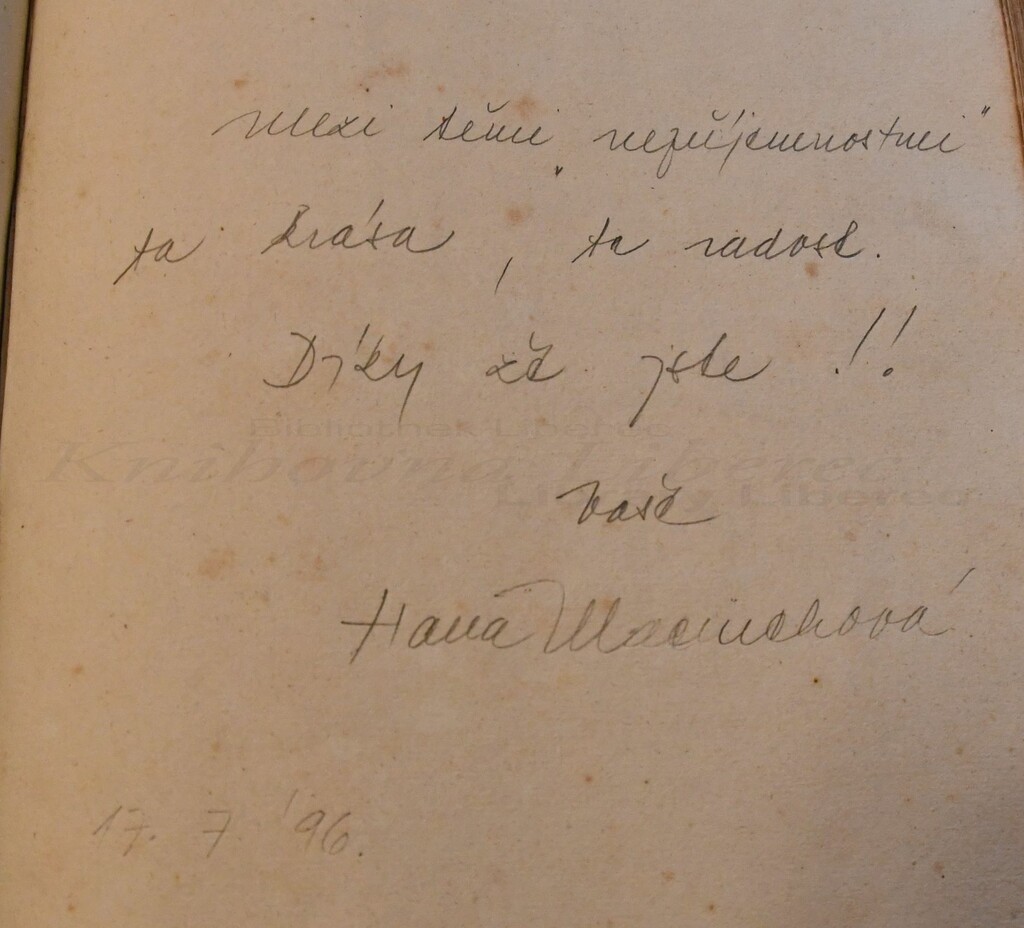 Mezi těmi „nepříjemnostmi"
ta krása, ta radost.
Díky že jste!!
Bibliothek Liberec
Knihovna Liberec
Library Liberec
Vaše
Hana
17. 7 '96.